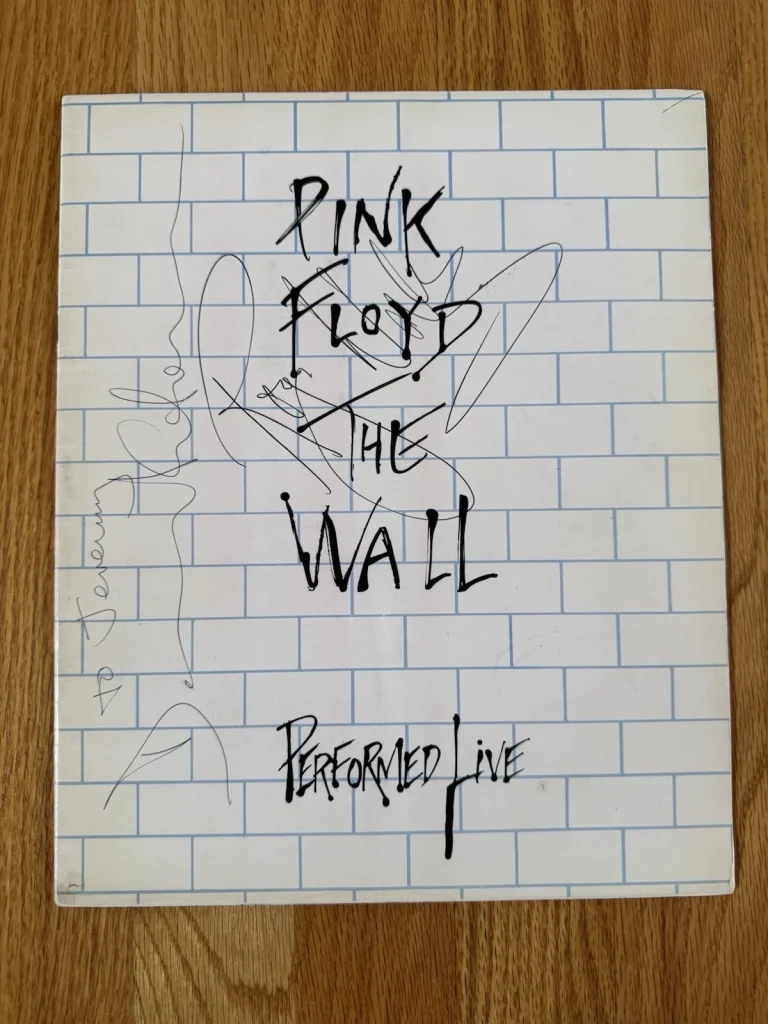 PINK
FLOYD
THE
WALL
PERFORMED LIVE
to Jeremy
Roger